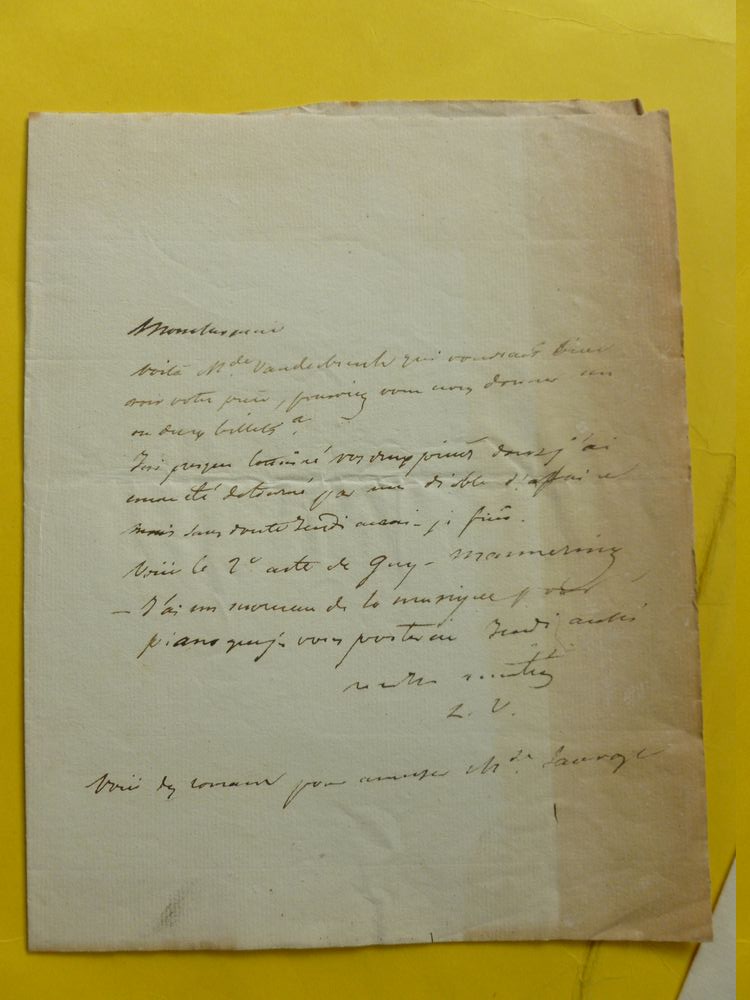 Mon cher ami
voilà Mde Vanderburch qui voudrait bien
voir votre pièce, pourriez vous nous donner un
ou deux billets ?
J'ai presque terminé vos deux pièces dont j'ai
encore été détourné par un diable d'affaire
mais sans doute Jeudi aussi - j'ai fini.
Voici le 2e acte de Guy - Mannering
- J'ai un morceau de la musique pour
piano que je vous porterai Jeudi aussi
mille amitiés
L. V.
Voici des romans pour amuser Mde Sauvage